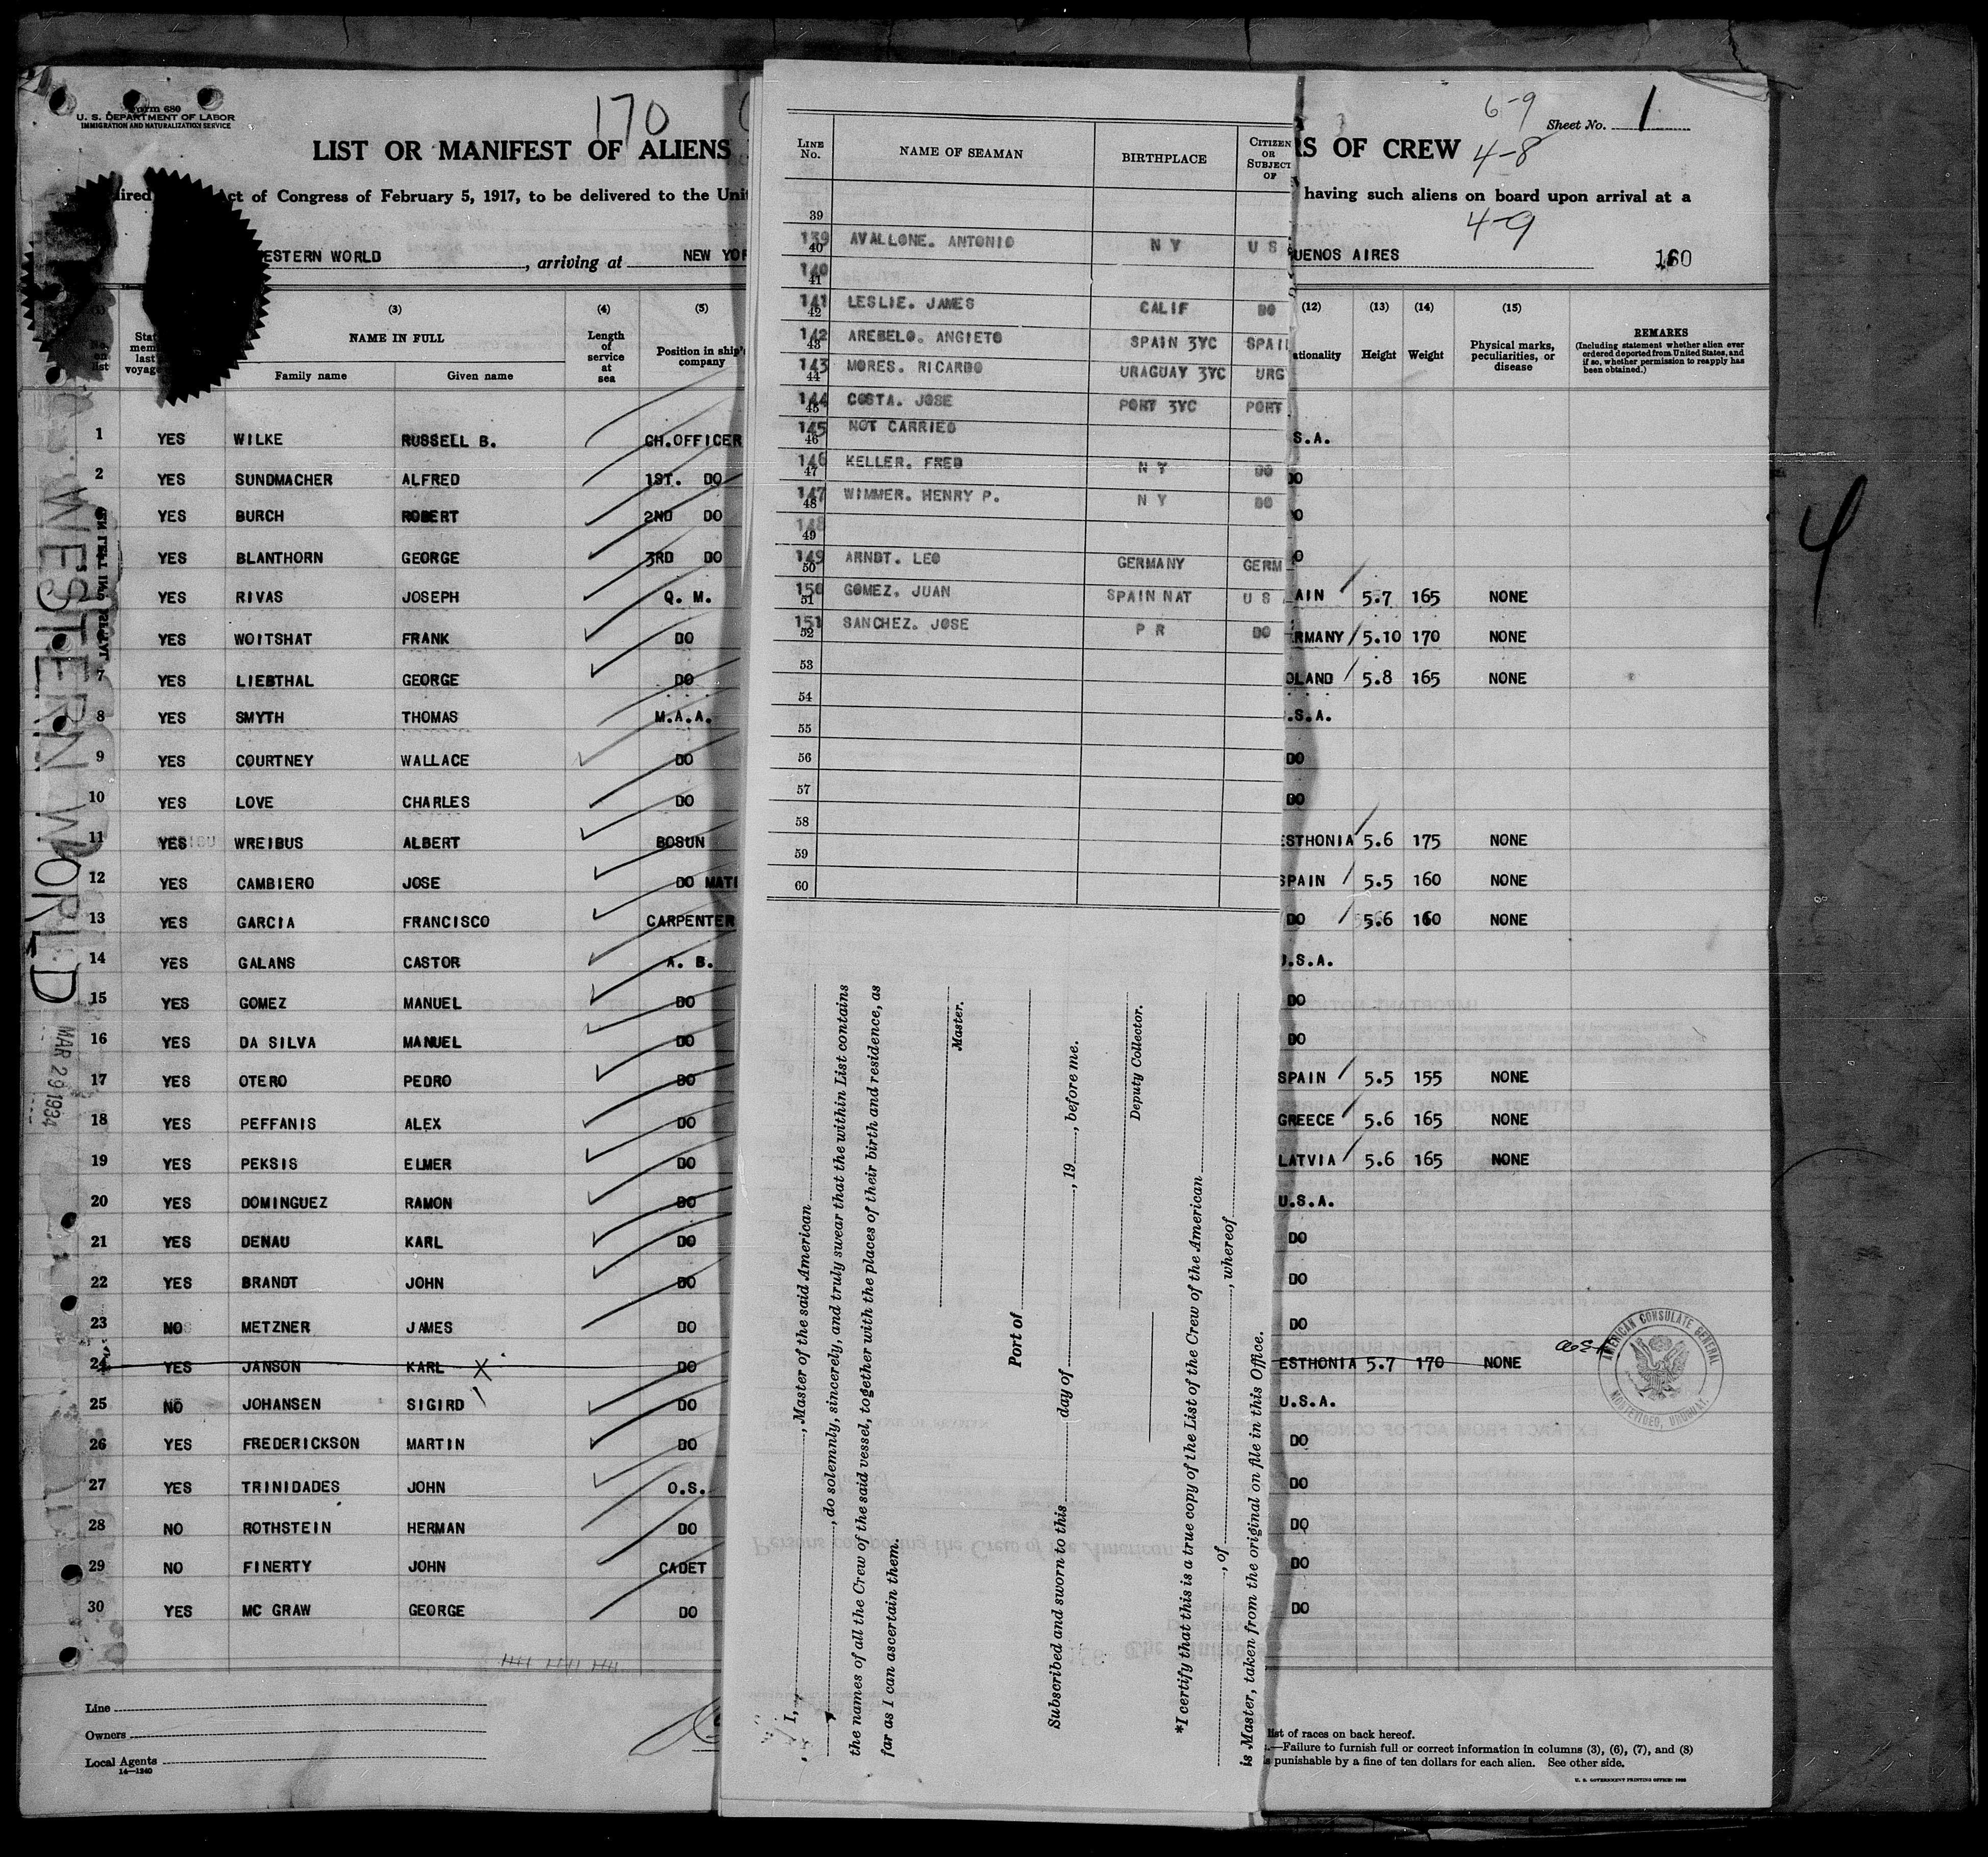 Form 680
U. S. DEPARTMENT OF LABOR
IMMIGRATION AND NATURALIZATION SERVICE
170
LIST OR MANIFEST OF ALIENS
Act of Congress of February 5, 1917, to be delivered to the
ESTERN WORLD, arriving at NEW YOR
(3) (4) (5)
NAME IN FULL
Family name Given name
Length of service at sea
Position in ship's company
1 YES WILKE RUSSELL B. CH.OFFICER
2 YES SUNDMACHER ALFRED 1ST. DO
YES BURCH ROBERT 2ND DO
YES BLANTHORN GEORGE 3RD DO
YES RIVAS JOSEPH Q. M.
YES WOITSHAT FRANK DO
7 YES LIEBTHAL GEORGE DO
8 YES SMYTH THOMAS M.A.A.
9 YES COURTNEY WALLACE DO
10 YES LOVE CHARLES DO
11 YES WREIBUS ALBERT BOSUN
12 YES CAMBIERO JOSE DO MAT
13 YES GARCIA FRANCISCO CARPENTER
14 YES GALANS CASTOR A. B.
15 YES GOMEZ MANUEL DO
16 YES DA SILVA MANUEL DO
17 YES OTERO PEDRO DO
18 YES PEFFANIS ALEX DO
19 YES PEKSIS ELMER DO
20 YES DOMINGUEZ RAMON DO
21 YES DENAU KARL DO
22 YES BRANDT JOHN DO
23 NO METZNER JAMES DO
24 YES JANSON KARL X DO
25 NO JOHANSEN SIGIRD DO
26 YES FREDERICKSON MARTIN DO
27 YES TRINIDADES JOHN O.S.
28 NO ROTHSTEIN HERMAN DO
29 NO FINERTY JOHN CADET
30 YES MC GRAW GEORGE DO
Line
Owners
Local Agents
14—1240
WESTERN WORLD
MAR 29 1934
LINE No. NAME OF SEAMAN BIRTHPLACE CITIZEN OR SUBJECT OF
39
139 40 AVALLONE. ANTONIO N Y U S
140 41
141 42 LESLIE. JAMES CALIF DO
142 43 AREBELO. ANGIETO SPAIN 3YC SPAI
143 44 MORES. RICARDO URAGUAY 3YC URG
144 45 COSTA. JOSE PORT 3YC PORT
145 46 NOT CARRIED
146 47 KELLER. FRED N Y DO
147 48 WIMMER. HENRY P. N Y DO
148 49
149 50 ARNDT. LEO GERMANY GERM
150 51 GOMEZ. JUAN SPAIN NAT U S
151 52 SANCHEZ. JOSE P R DO
53
54
55
56
57
58
59
60
I, , Master of the said American
, do solemnly, sincerely, and truly swear that the within List contains
the names of all the Crew of the said vessel, together with the places of their birth and residence, as
far as I can ascertain them.
Master.
Port of
Subscribed and sworn to this day of , 19 , before me.
Deputy Collector.
*I certify that this is a true copy of the List of the Crew of the American
, of , whereof
is Master, taken from the original on file in this Office.
6-9
Sheet No. 1
RS OF CREW 4-8
having such aliens on board upon arrival at a
4-9
UENOS AIRES 160
(12) (13) (14) (15)
ationality Height Weight
Physical marks, peculiarities, or disease
REMARKS
(Including statement whether alien ever ordered deported from United States, and if so, whether permission to reapply has been obtained.)
S.A.
DO
O
O
AIN 5.7 165 NONE
RMANY 5.10 170 NONE
OLAND 5.8 165 NONE
.S.A.
DO
DO
ESTHONIA 5.6 175 NONE
SPAIN 5.5 160 NONE
DO 5.6 160 NONE
.S.A.
DO
DO
SPAIN 5.5 155 NONE
GREECE 5.6 165 NONE
LATVIA 5.6 165 NONE
U.S.A.
DO
DO
DO
ESTHONIA 5.7 170 NONE
U.S.A.
DO
DO
DO
DO
DO
AMERICAN CONSULATE GENERAL
MONTEVIDEO, URUGUAY.
list of races on back hereof.
—Failure to furnish full or correct information in columns (3), (6), (7), and (8)
is punishable by a fine of ten dollars for each alien. See other side.
U. S. GOVERNMENT PRINTING OFFICE
4